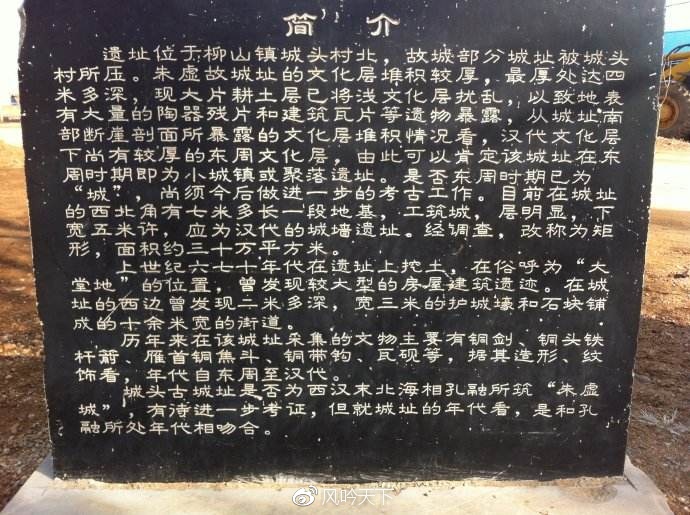 简介
遗址位于柳山镇城头村北，故城部分城址被城头
村所压。朱虚故城址的文化层堆积较厚，最厚处达四
米多深，现大片耕土层已将浅文化层扰乱，以致地表
有大量的陶器残片和建筑瓦片等遗物暴露，从城址南
部断崖剖面所暴露的文化层堆积情况看，汉代文化层
下尚有较厚的东周文化层，由此可以肯定该城址在东
周时期即为小城镇或聚落遗址。是否东周时期已为
“城”，尚须今后做进一步的考古工作。目前在城址
的西北角有七米多长一段地基，工筑城，层明显，下
宽五米许，应为汉代的城墙遗址。经调查，改称为矩
形，面积约三十万平方米。
上世纪六七十年代在遗址上挖土，在俗呼为“大
堂地”的位置，曾发现较大型的房屋建筑遗迹。在城
址的西边曾发现二米多深，宽三米的护城壕和石块铺
成的十余米宽的街道。
历年来在该城址采集的文物主要有铜剑、铜头铁
杆箭、雁首铜焦斗、铜带钩、瓦砚等，据其造形、纹
饰看，年代自东周至汉代。
城头古城址是否为西汉末北海相孔融所筑“朱虚
城”，有待进一步考证，但就城址的年代看，是和孔
融所处年代相吻合。
风吟天下